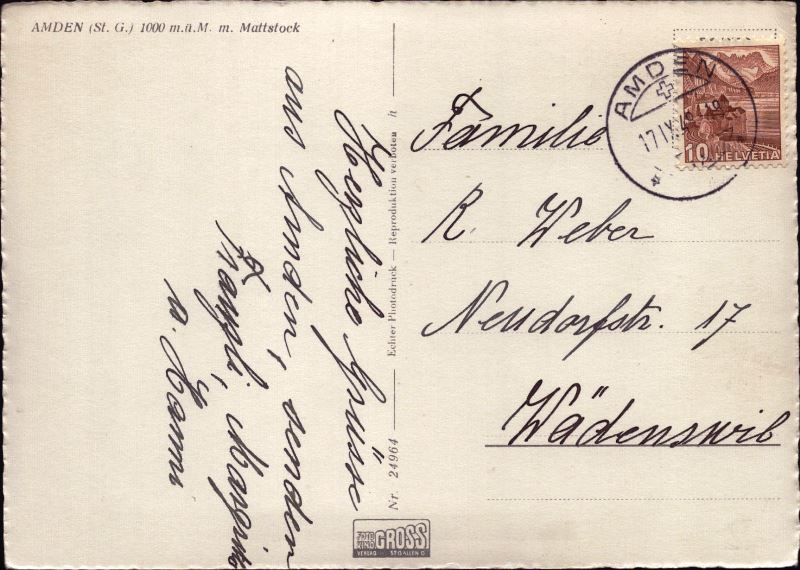 AMDEN (St. G.) 1000 m.ü.M. m. Mattstock
Herzliche Grüsse
aus Amden, senden
u. Hanni
Nr. 24964 — Echter Photodruck — Reproduktion verboten
GROSS
VERLAG ST GALLEN
AMDEN
17 IX
10 HELVETIA
Familie
R. Weber
Neudorfstr. 17
Wädenswil